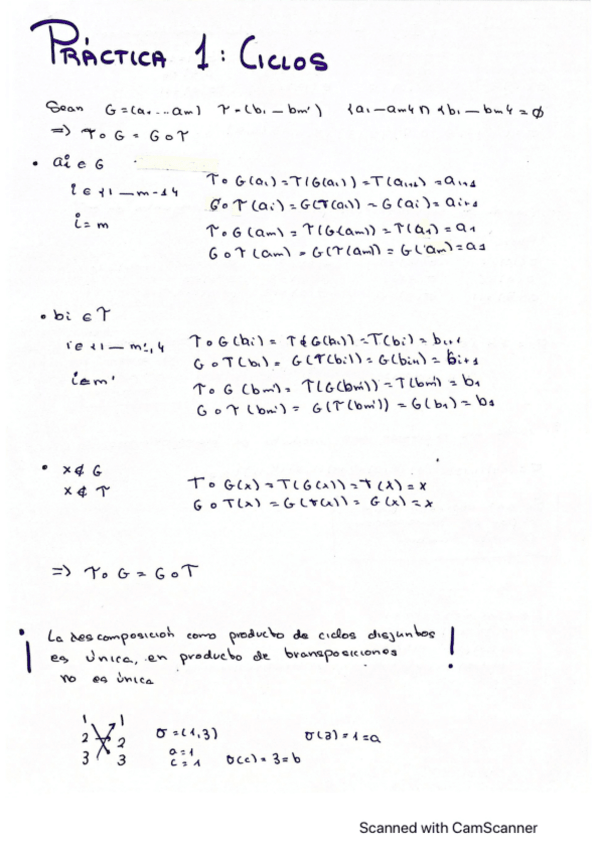 PRÁCTICA 1: CICLOS
Sean G=(a1...am) τ=(b1—bm') {a1—am} ∩ {b1—bm'} = ∅
=> τ∘G = G∘τ
• ai ∈ G
i ∈ {1—m-1} τ∘G(ai)=τ(G(ai))=τ(ai+1)=ai+1
G∘τ(ai)=G(τ(ai))=G(ai)=ai+1
i=m τ∘G(am)=τ(G(am))=τ(a1)=a1
G∘τ(am)=G(τ(am))=G(am)=a1
• bi ∈ τ
i ∈ {1—m'-1} τ∘G(bi)=τ(G(bi))=τ(bi)=bi+1
G∘τ(bi)=G(τ(bi))=G(bi+1)=bi+1
i=m' τ∘G(bm')=τ(G(bm'))=τ(bm')=b1
G∘τ(bm')=G(τ(bm'))=G(b1)=b1
• x∉G
x∉τ τ∘G(x)=τ(G(x))=τ(x)=x
G∘τ(x)=G(τ(x))=G(x)=x
=> τ∘G=G∘τ
¡ La descomposición como producto de ciclos disjuntos !
es única, en producto de transposiciones
no es única
1 1
2 2 σ=(1,3) σ(3)=1=a
3 3 a=1
c=1 σ(c)=3=b
Scanned with CamScanner